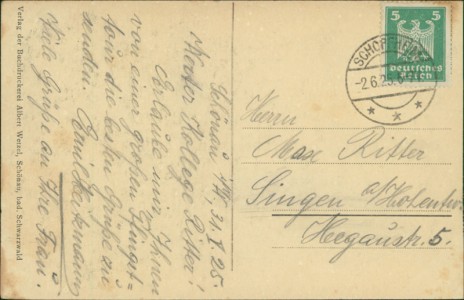 Verlag der Buchdruckerei Albert Wetzel, Schönau, bad. Schwarzwald
Schönau i/W, 31.V.25.
Werter Kollege Ritter!
Erlaube mir Ihnen
von einer großen Pfingst-
tour die besten Grüße zu
senden. Emil
Viele Grüße an Ihre Frau.
5 5
Deutsches
Reich
-2.6.25.
Herrn
Max Ritter
Singen a/Hohentwiel
Hegaustr. 5.